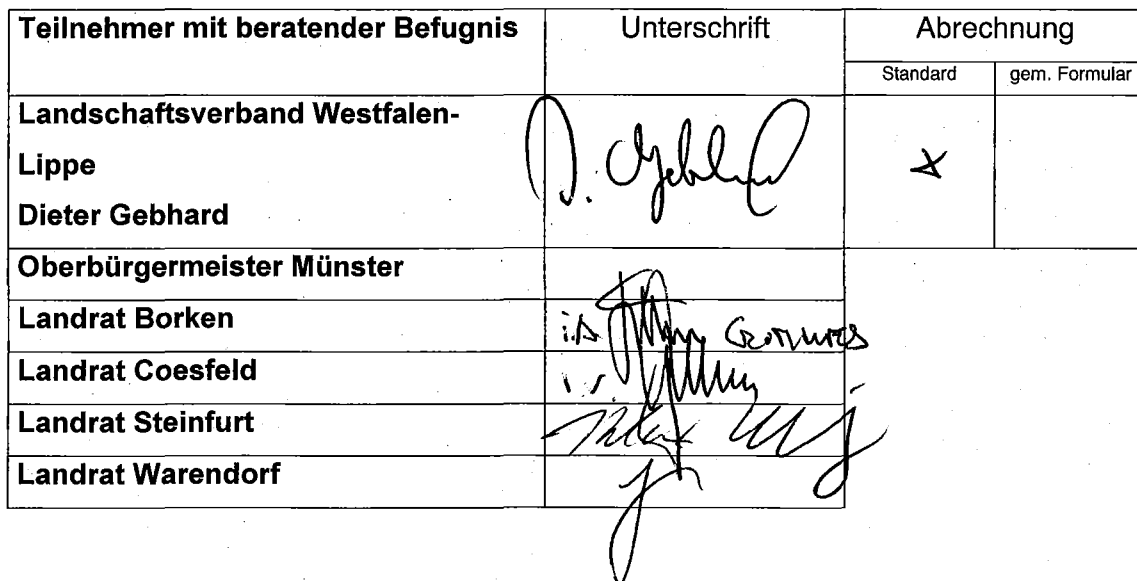 Teilnehmer mit beratender Befugnis Unterschrift Abrechnung
Standard gem. Formular
Landschaftsverband Westfalen-
Lippe
Dieter Gebhard
D. Gebhard
Oberbürgermeister Münster
Landrat Borken
Landrat Coesfeld
Landrat Steinfurt
Landrat Warendorf